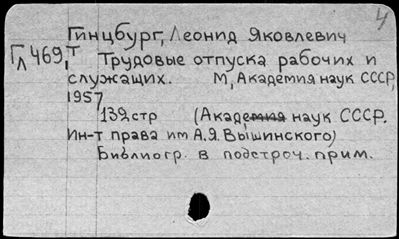 4
Гинцбург, Леонид Яковлевич
Гл469, Т Трудовые отпуска рабочих и
служащих. М, Академия наук СССР,
1957
139 стр (Академия наук СССР.
Ин-т права им А.Я.Вышинского)
Библиогр. в подстроч. прим.